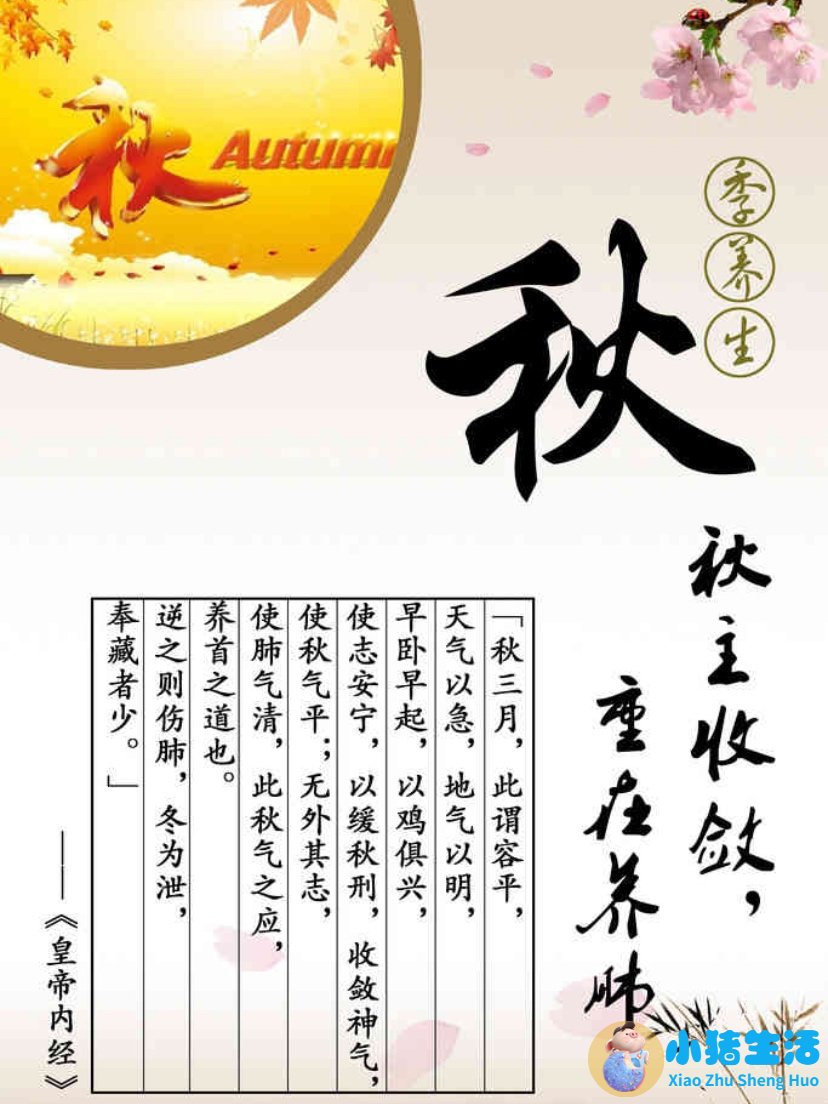 秋 Autumn
秋
季养生
秋主收敛，
重在养肺
「秋三月，此谓容平，
天气以急，地气以明，
早卧早起，以鸡俱兴，
使志安宁，以缓秋刑，收敛神气，
使秋气平；无外其志，
使肺气清，此秋气之应，
养首之道也。
逆之则伤肺，冬为泄，
奉藏者少。」
——《皇帝内经》
小猪生活
Xiao Zhu Sheng Huo